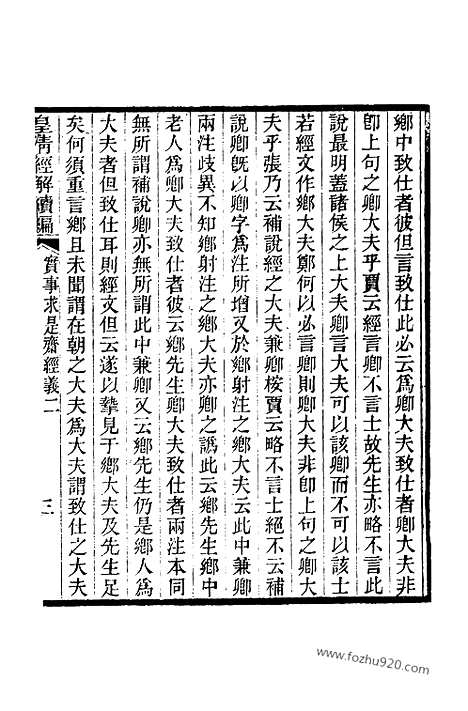 鄉中致仕者彼但言致仕此必云爲卿大夫致仕者卿大夫非
卽上句之卿大夫乎賈云經言卿不言士故先生亦略不言此
說最明蓋諸侯之上大夫卿言大夫可以該卿而不可以該士
若經文作鄉大夫鄭何以必言卿則卿大夫非卽上句之卿大
夫乎張乃云補說經之大夫兼卿桉賈云略不言士絕不云補
說卿旣以卿字爲注所增又於鄉射注之卿大夫云此中兼卿
兩注歧異不知鄉射注之鄉大夫亦卿之譌此云鄉先生鄉中
老人爲卿大夫致仕者彼云鄉先生卿大夫致仕者兩注本同
無所謂補說卿亦無所謂此中兼卿又云鄉先生仍是鄉人爲
大夫者但致仕耳則經文但云遂以摯見于鄉大夫及先生足
矣何須重言鄉且未聞謂在朝之大夫爲大夫謂致仕之大夫
皇淸經解續編
實事求是齋經義二
三
www.fozhu920.com